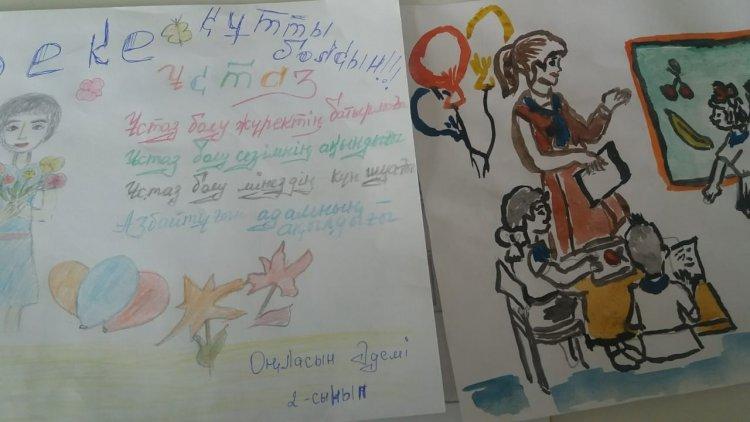 еке құтты
болсын!!!
Ұстаз
Ұстаз болу жүректің батырлығы
Ұстаз болу сезімнің ақындығы
Ұстаз болу мінездің күн шуағы
Азбайтұғын адамның
ақылдығы
Оңласын Әдемі
2-сынып